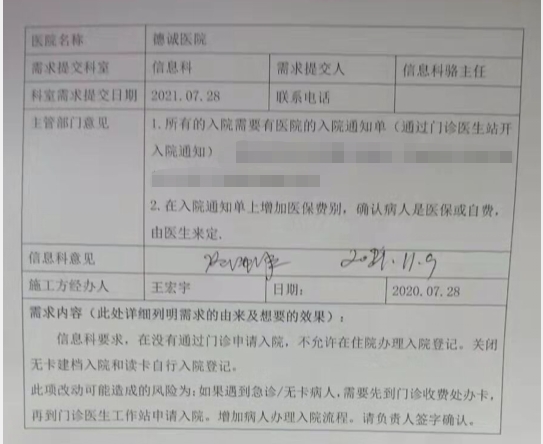 医院名称 德诚医院
需求提交科室 信息科 需求提交人 信息科骆主任
科室需求提交日期 2021.07.28 联系电话
主管部门意见 1.所有的入院需要有医院的入院通知单（通过门诊医生站开
入院通知）
2.在入院通知单上增加医保费别，确认病人是医保或自费，
由医生来定.
信息科意见 2021.11.9
施工方经办人 王宏宇 日期: 2020.07.28
需求内容（此处详细列明需求的由来及想要的效果）:
信息科要求，在没有通过门诊申请入院，不允许在住院办理入院登记。关闭
无卡建档入院和读卡自行入院登记。
此项改动可能造成的风险为:如果遇到急诊/无卡病人,需要先到门诊收费处办卡，
再到门诊医生工作站申请入院。增加病人办理入院流程。请负责人签字确认。